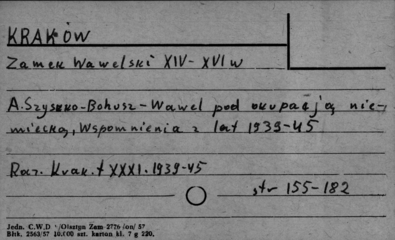 KRAKÓW
Zamek Wawelski XIV-XVI w
A. Szyszko-Bohusz - Wawel pod okupacją nie-
miecką, Wspomnienia z lat 1939-45
Rocz. Krak. t XXXI. 1939-45
str 155-182
Jedn. C.W.D /Olsztyn Zam 2776 /on/ 57
Bltk. 2563/57 10.000 szt. karton kl. 7 g 220.